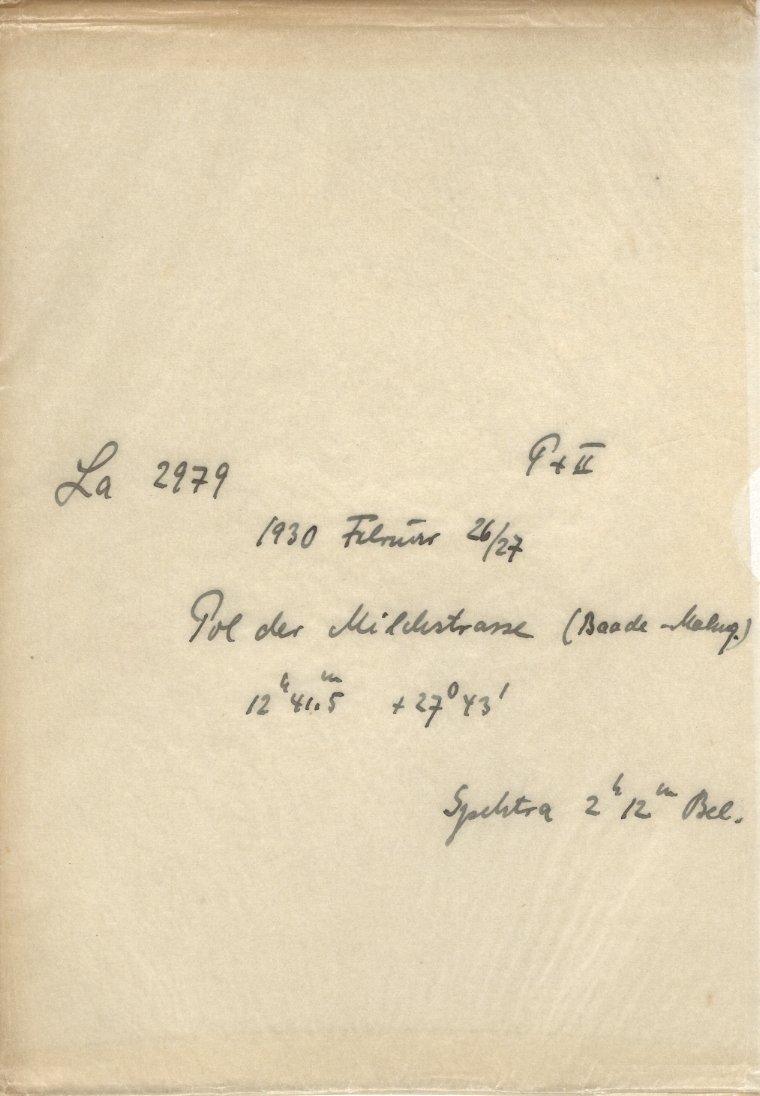 La 2979 P + II
1930 Februar 26/27
Pol der Milchstrasse (Baade-Malmq.)
12ʰ41.ᵐ5 +27⁰43'
Spektra 2ʰ12ᵐ Bel.